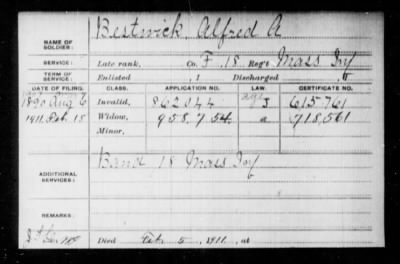 Bestwick, Alfred A
NAME OF SOLDIER:
SERVICE: Late rank, Co. F, 18 Reg't Mass Inf
TERM OF SERVICE: Enlisted , 1 Discharged , 1
DATE OF FILING. CLASS. APPLICATION NO. LAW. CERTIFICATE NO.
1890 Aug 6 Invalid, 862044 J 615761
1911 Feb 18 Widow, 958754 a 718561
Minor,
ADDITIONAL SERVICES: Band 18 Mass Inf
REMARKS:
Died Feb. 5, 1911, at